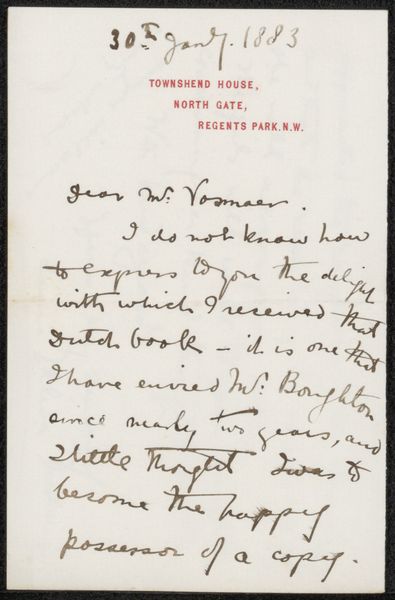 30th Jany. 1883
TOWNSHEND HOUSE,
NORTH GATE,
REGENTS PARK. N.W.
Dear Mr. Vosmaer.
I do not know how
to express to you the delight
with which I received that
Dutch book – it is one that
I have envied Mr. Boughton
since nearly two years, and
I little thought I was to
become the happy
possessor of a copy.